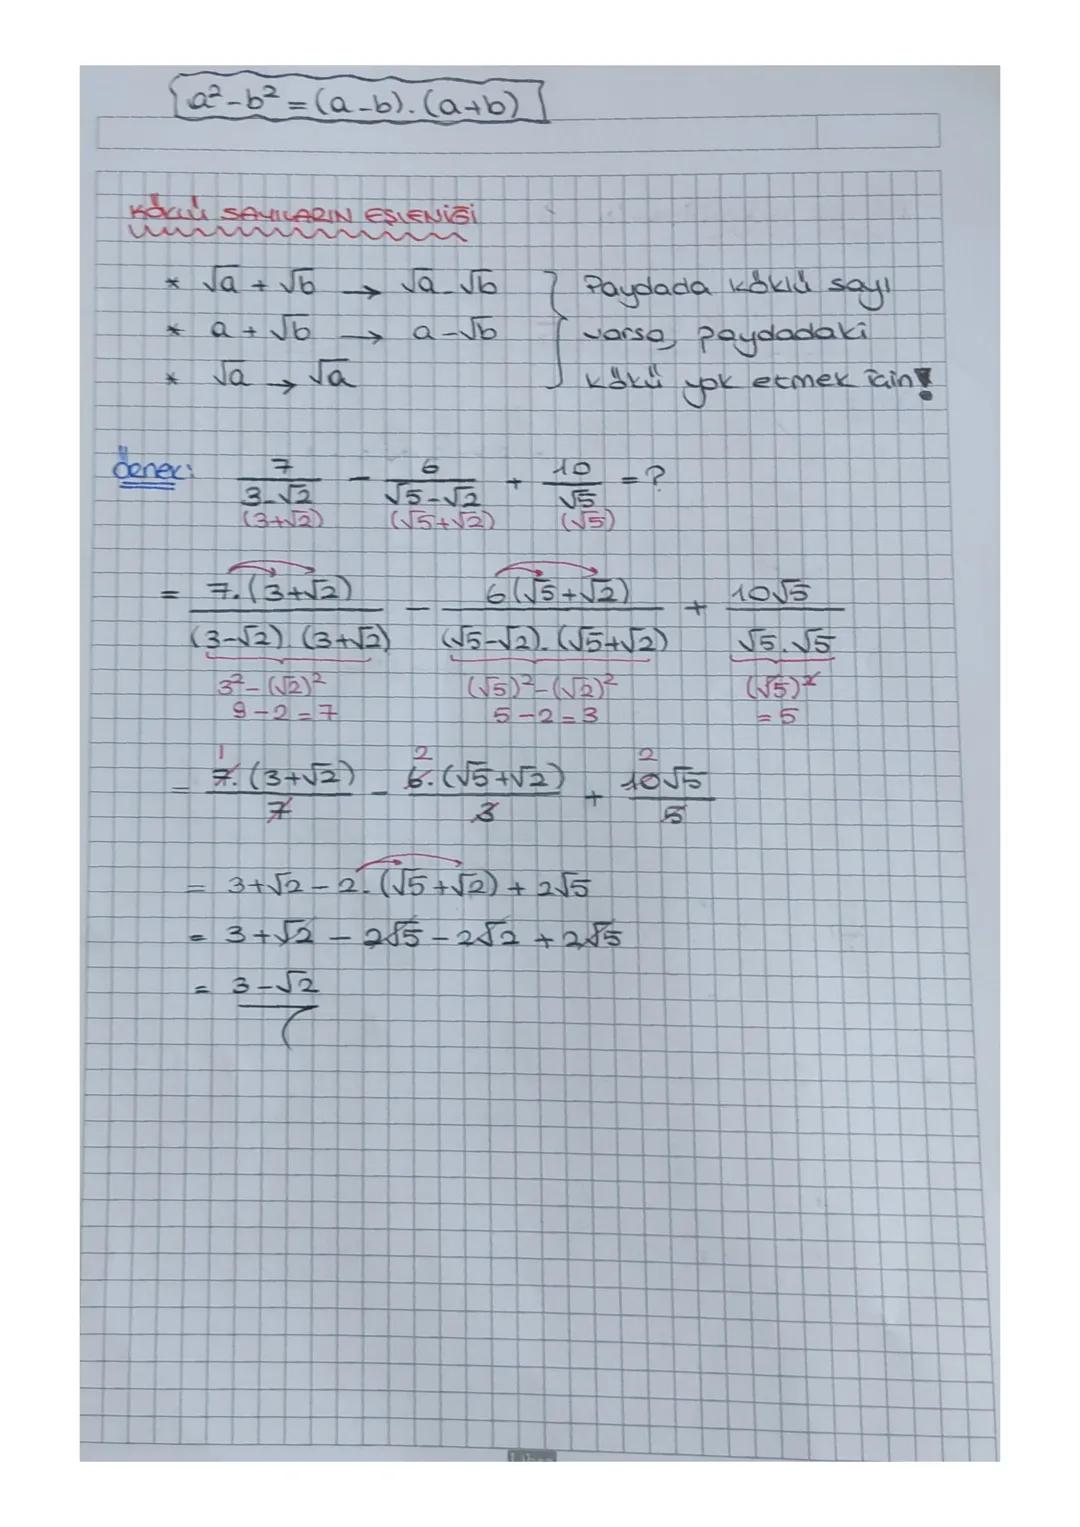 a²-b² = (a-b).(a+b)
KÖKLÜ SAYILARIN EŞLENİĞİ
* √a + √b → √a-√b } Paydada köklü sayı
* a + √b → a-√b varsa, paydadaki
* √a → √a kökü yok etmek için!
örnek: 7/(3-√2) - 6/(√5-√2) + 10/√5 = ?
(3+√2) (√5+√2) (√5)
= 7.(3+√2)/((3-√2) (3+√2)) - 6(√5+√2)/((√5-√2).(√5+√2)) + 10√5/(√5.√5)
3²-(√2)² (√5)²-(√2)² (√5)²
9-2=7 5-2=3 =5
1 2 2
= 7.(3+√2)/7 - 6.(√5+√2)/3 + 10√5/5
= 3+√2-2.(√5+√2)+2√5
= 3+√2-2√5-2√2+2√5
= 3-√2